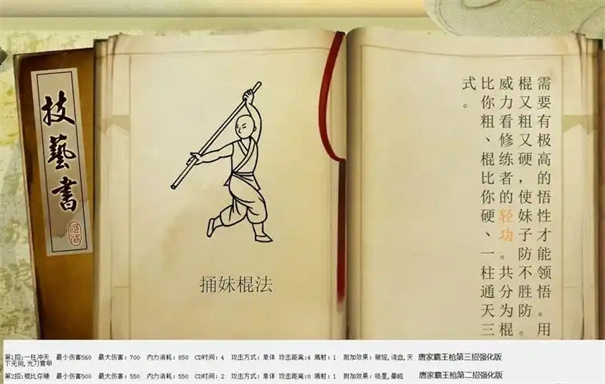 技藝書
捅妹棍法
需要有极高的悟性才能领悟。用
棍又粗又硬,使妹子防不胜防。
威力看修练者的轻功。共分为棍
比你粗、棍比你硬、一柱通天三
式。
第1招:一柱冲天 最小伤害560 最大伤害: 700 内力消耗: 850 CD时间: 4 攻击方式: 单体 攻击距离:4 溅射: 1 附加效果: 破绽, 流血, 天下无狗, 光刀青甲 唐家霸王枪第三招强化版
第2招:棍比你硬 最小伤害500 最大伤害: 550 内力消耗: 550 CD时间: 2 攻击方式: 单体 攻击距离:0 溅射: 1 附加效果: 塔星, 晕眩 唐家霸王枪第二招强化版